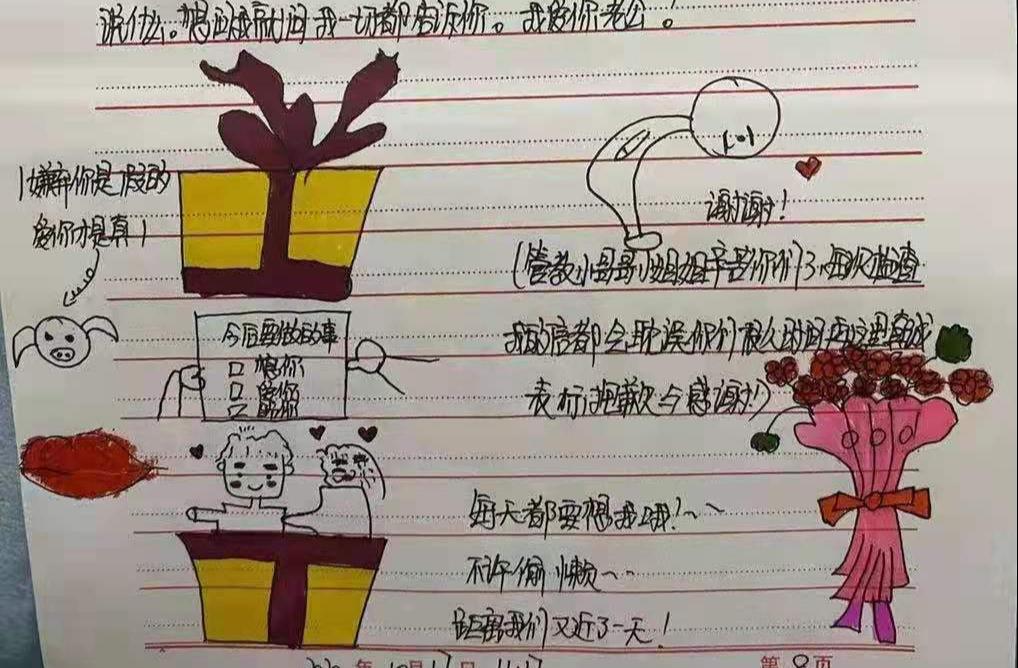 说什么。想问啥就问我一切都告诉你。我爱你老公!
嫌弃你是假的
爱你才是真!
谢谢!
(管教小哥哥小姐姐辛苦你们了,每次检查
我的信都会耽误你们很久时间在这里真诚
表示抱歉与感谢!)
今后要做的事
□ 想你
□ 爱你
□
每天都要想我哦!~~
不许偷懒~~
距离我们又近了一天!
年 月 日
第 8 页